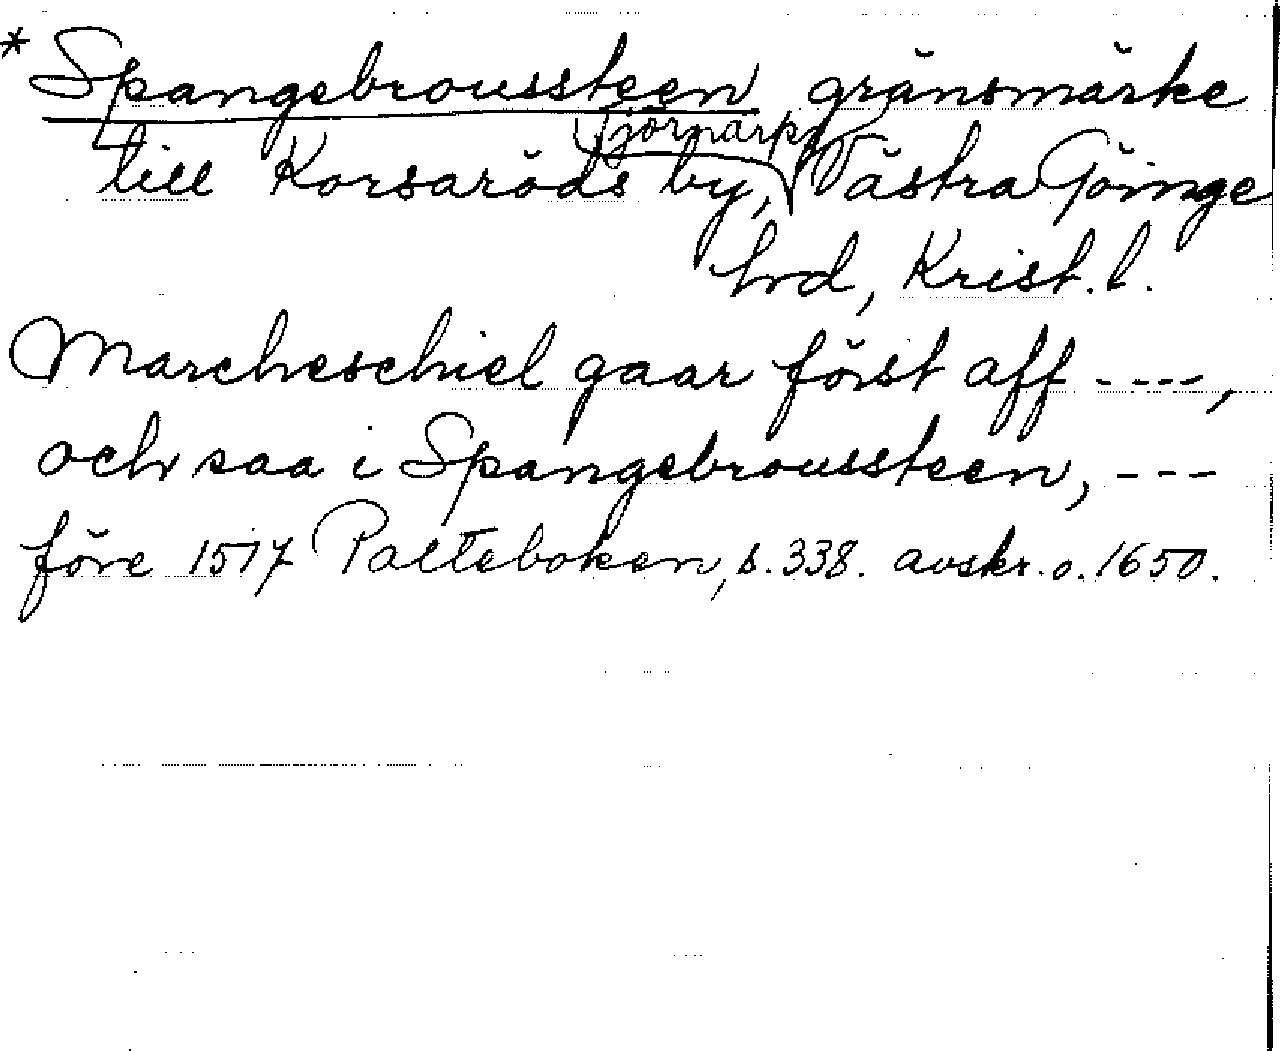 * Spangebroussteen gränsmärke
till Korsaröds by, Tjörnarps Västra Göinge
hrd, Krist. l.
Marcheschiel gaar först aff ----,
och saa i Spangebroussteen, ---
före 1517 Palteboken, s. 338. avskr. o. 1650.